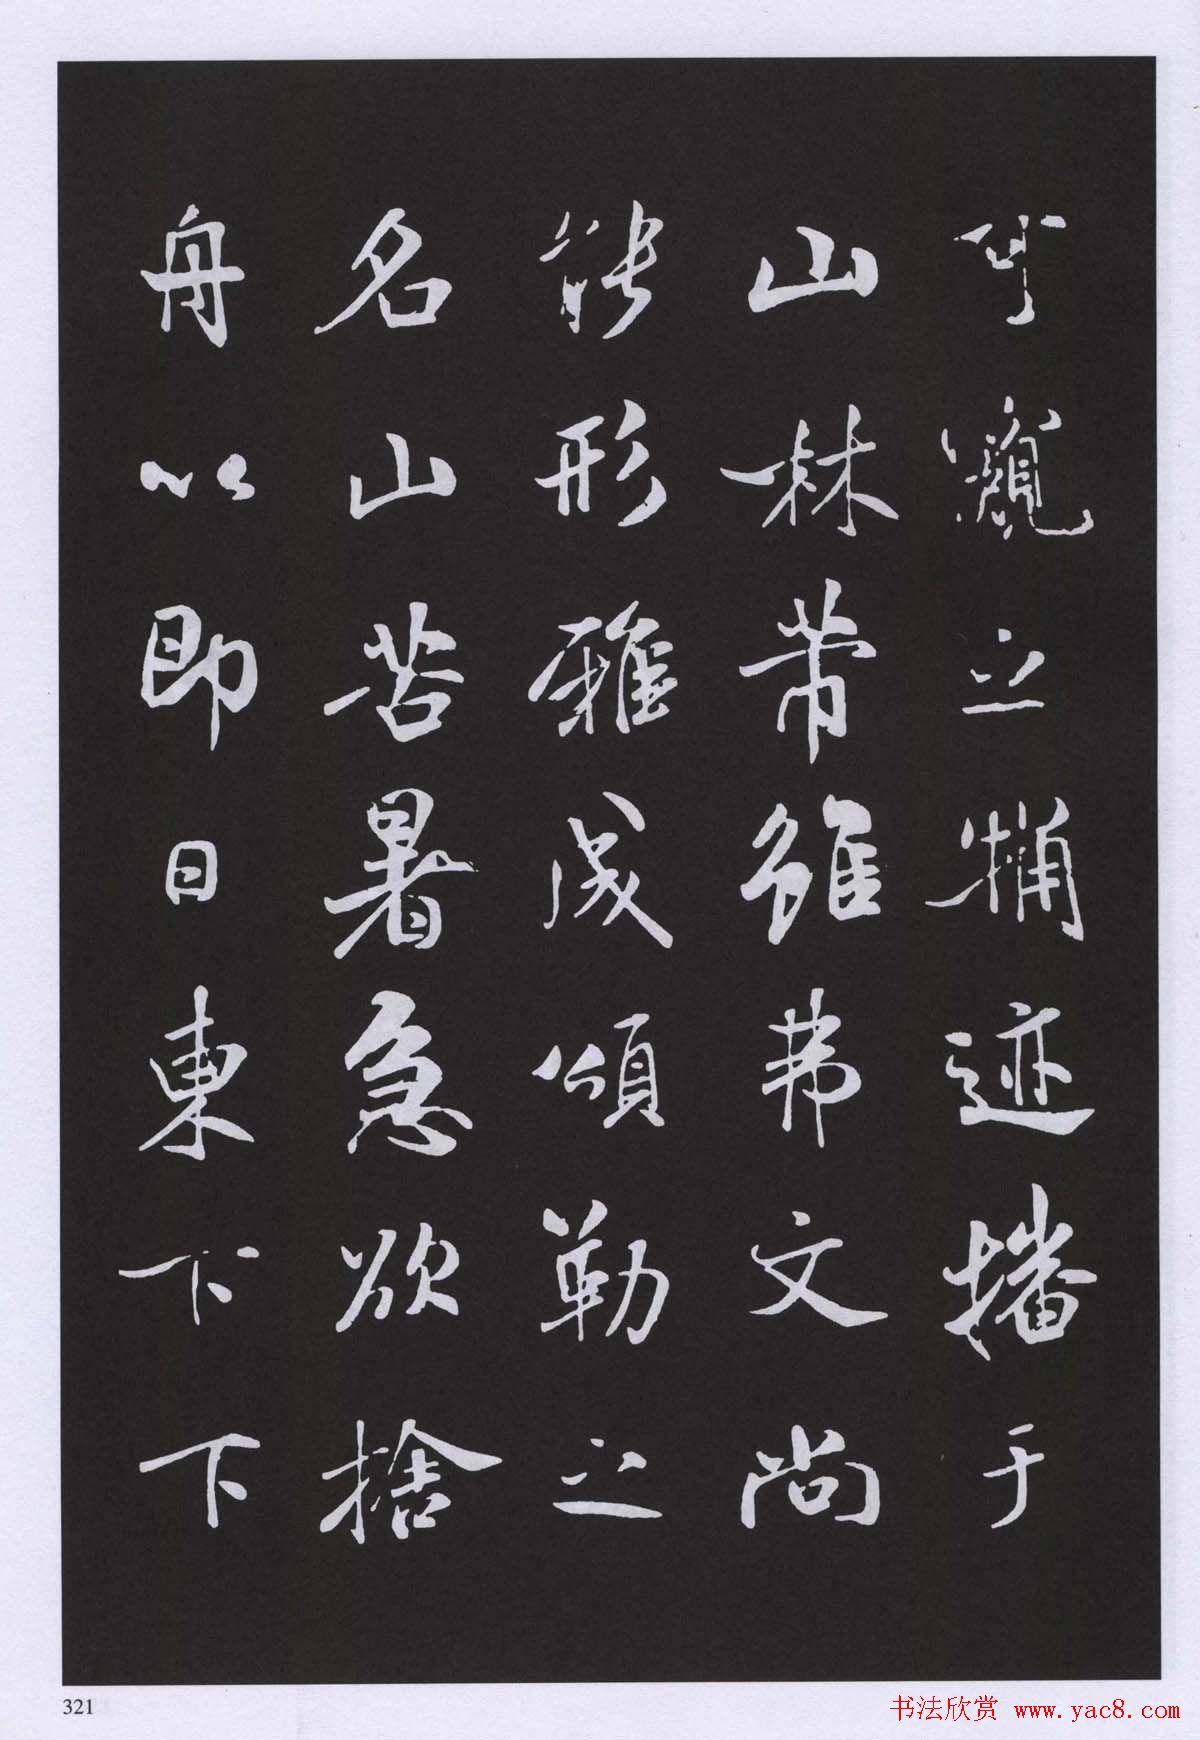 可窺立捕迹播于
山林芾雖弗文尚
能形雅成頌勒之
名山苦暑急欲捨
舟以即日東下下
321
书法欣赏 www.yac8.com